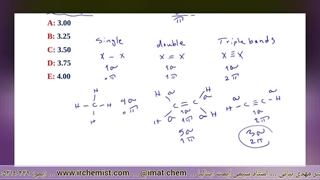 2π
A: 3.00
B: 3.25
C: 3.50
D: 3.75
E: 4.00
Single double Triple bonds
X – X X = X X ≡ X
1σ 1σ 1σ
0π 1π 2π
H H H
H – C – H 4σ C = C H – C ≡ C – H
H 0π H H
5σ 3σ
1π 2π
www.irchemist.com @imat.chem